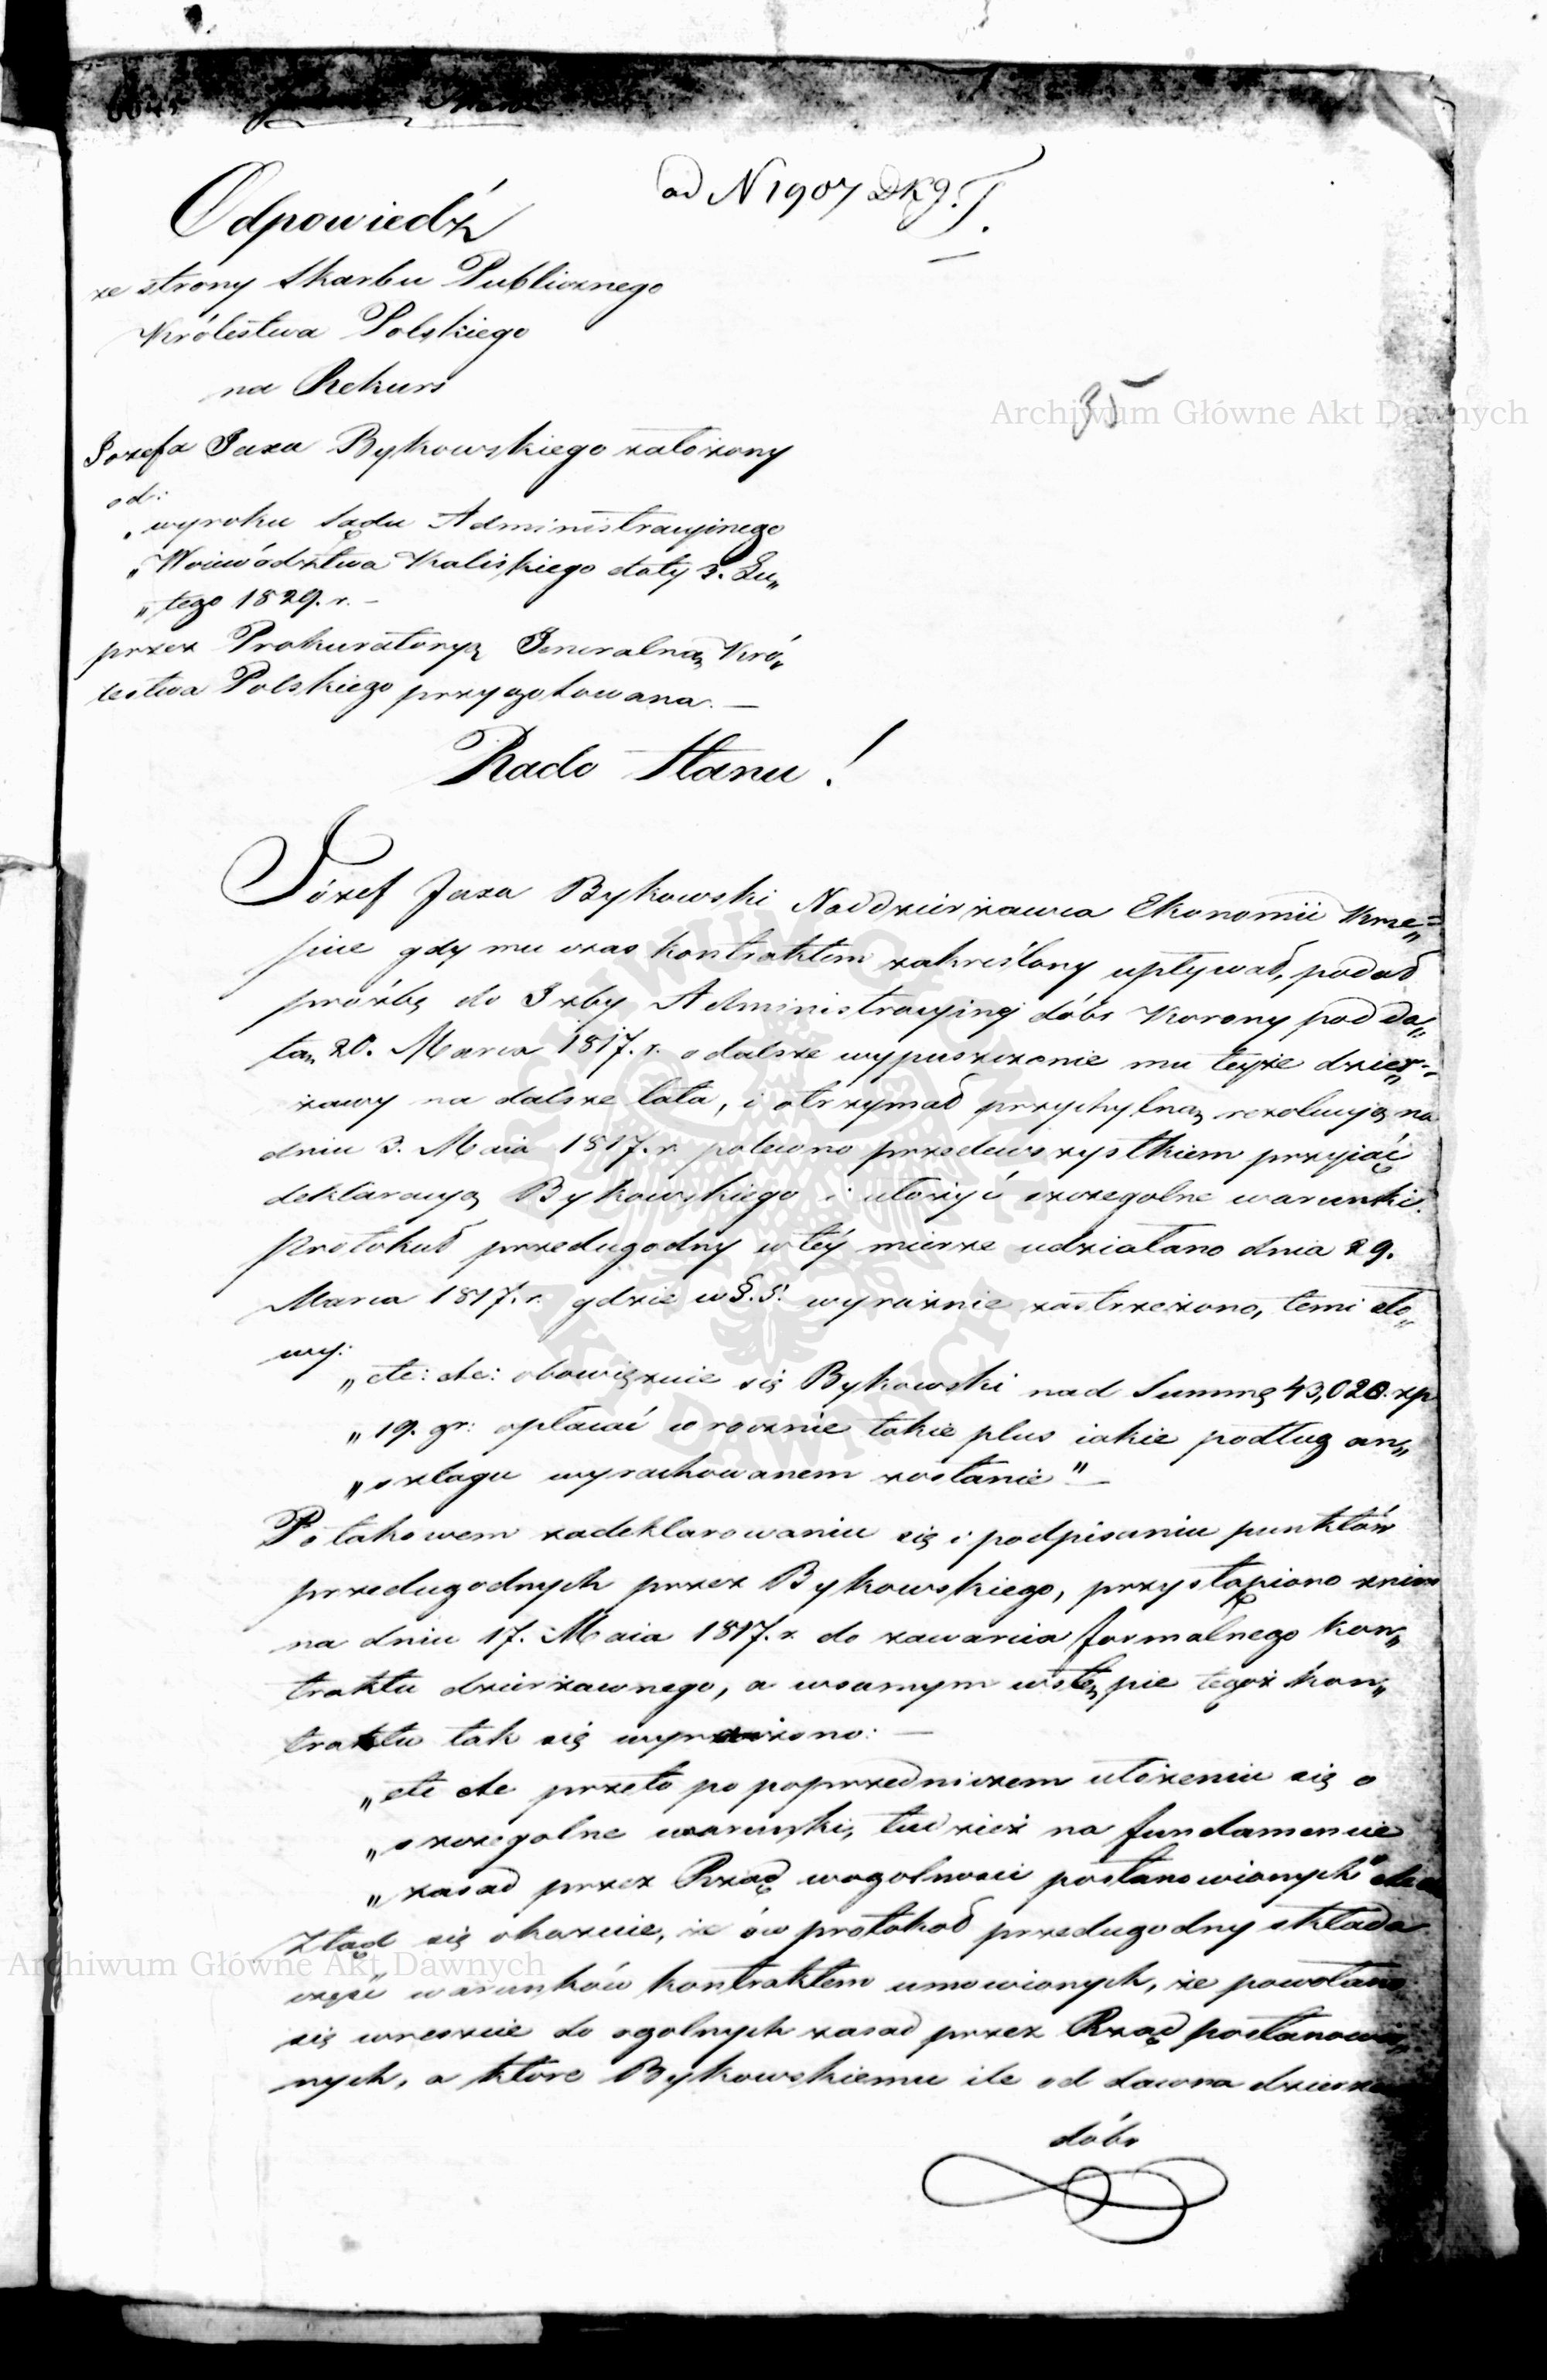 od N 1907 DKg. T.
Odpowiedź
ze strony Skarbu Publicznego
Królestwa Polskiego
na Rekurs
35
Archiwum Główne Akt Dawnych
Jozefa Jaxa Bykowskiego założony
od:
„wyroku Sądu Administracyinego
„Woiewództwa Kaliskiego daty 3. Lu„
„tego 1829. r. –
przez Prokuratoryą Generalną Kró„
lestwa Polskiego przygotowana. —
Rado Stanu!
Józef Jaxa Bykowski Naddzierżawca Ekonomii Krze„
piec gdy mu czas kontraktem zakreślony upływał, podał
prożbę do Izby Administracyiney dóbr Korony pod da„
tą 20. Marca 1817. r. o dalsze wypuszczenie mu teyże dzier„
żawy na dalsze lata, i otrzymał przychylną rezolucyą na
dniu 3. Maia 1817. r. polecono przedewszystkiem przyiąć
deklaracyą Bykowskiego i ułożyć szczegolne warunki.
Protokuł przedugodny w téy mierze udziałano dnia 29.
Marca 1817. r. gdzie w §. 5. wyraźnie zastrzeżono, temi sło„
wy:
„etc: etc: obowiązuie się Bykowski nad Summę 43,020. zp
„19. gr: opłacać w rocznie takie plus iakie podług an„
„szlagu wyrachowanem zostanie" —
Po takowem zadeklarowaniu się i podpisaniu punktów
przedugodnych przez Bykowskiego, przystąpiono z nim
na dniu 17. Maia 1817. r. do zawarcia formalnego kon„
traktu dzierżawnego, a w samym wstępie tegoż kon„
traktu tak się wyrażono: —
„etc etc przeto po poprzedniczem ułożeniu się o
„szczegolne warunki, tudzież na fundamencie
„zasad przez Rząd wogolnosci postanowionych" etc
Ztąd się okazuie, że ów protokoł przedugodny składa
Archiwum Główne Akt Dawnych
część warunków kontraktem umowionych, że powołano
się wreszcie do ogolnych zasad przez Rząd postanowio„
nych, a które Bykowskiemu ile od dawna
dóbr